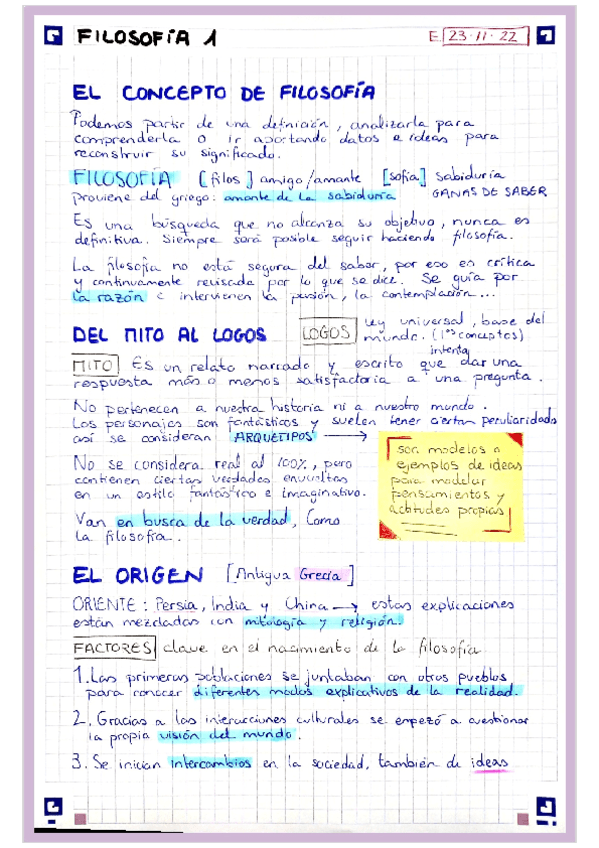 FILOSOFÍA 1
E. 23·11·22
EL CONCEPTO DE FILOSOFÍA
Podemos partir de una definición, analizarla para
comprenderla o ir aportando datos e ideas para
reconstruir su significado.
FILOSOFÍA [filos] amigo/amante [sofia] sabiduría
proviene del griego: amante de la sabiduría GANAS DE SABER
Es una búsqueda que no alcanza su objetivo, nunca es
definitiva. Siempre será posible seguir haciendo filosofía.
La filosofía no está segura del saber, por eso es crítica
y continuamente revisada por lo que se dice. Se guía por
la razón e intervienen la pasión, la contemplación...
DEL MITO AL LOGOS LOGOS ley universal, base del
mundo. (1ºs conceptos)
MITO Es un relato narrado y escrito que intenta dar una
respuesta más o menos satisfactoria a una pregunta.
No pertenecen a nuestra historia ni a nuestro mundo.
Los personajes son fantásticos y suelen tener ciertas peculiaridades
así se consideran ARQUETIPOS →
son modelos o
ejemplos de ideas
para modelar
pensamientos y
actitudes propias
No se considera real al 100%, pero
contienen ciertas verdades envueltas
en un estilo fantástico e imaginativo.
Van en busca de la verdad, como
la filosofía.
EL ORIGEN [Antigua Grecia]
ORIENTE: Persia, India y China → estas explicaciones
están mezcladas con mitología y religión.
FACTORES clave en el nacimiento de la filosofía
1. Las primeras poblaciones se juntaban con otros pueblos
para conocer diferentes modos explicativos de la realidad.
2. Gracias a las interacciones culturales se empezó a cuestionar
la propia visión del mundo.
3. Se inician intercambios en la sociedad, también de ideas